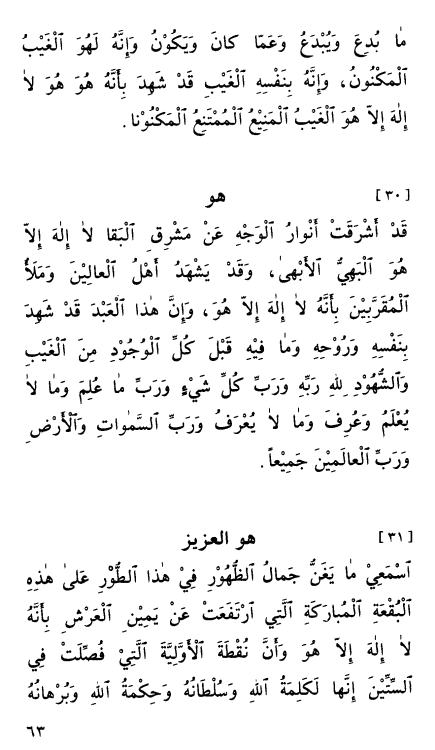 مٰا بُدِعَ وَيُبْدَعُ وَعَمّا كانَ وَيَكُوْنُ وَإِنَّهُ لَهُوَ ٱلْغَيْبُ
ٱلْمَكْنُونُ، وَإِنَّهُ بِنَفْسِهِ ٱلْغَيْبِ قَدْ شَهِدَ بِأَنَّهُ هُوَ هُوَ لاٰ
إِلٰهَ إِلاّ هُوَ ٱلْغَيْبُ ٱلْمَنِيْعُ ٱلْمُمْتَنِعُ ٱلْمَكْنُوْنا.
[٣٠] هو
قَدْ أَشْرَقَتْ أَنْوارُ ٱلْوَجْهِ عَنْ مَشْرِقِ ٱلْبَقا لاٰ إِلٰهَ إِلاّ
هُوَ ٱلْبَهِيُّ ٱلْأَبْهىٰ، وَقَدْ يَشْهَدُ أَهْلُ ٱلْعالِيْنَ وَمَلَأُ
ٱلْمُقَرَّبِيْنَ بِأَنَّهُ لاٰ إِلٰهَ إِلاّ هُوَ، وَإِنَّ هٰذا ٱلْعَبْدَ قَدْ شَهِدَ
بِنَفْسِهِ وَرُوْحِهِ وَما فِيْهِ قَبْلَ كُلِّ ٱلْوُجُوْدِ مِنَ ٱلْغَيْبِ
وَٱلشُّهُوْدِ لِلّٰهِ رَبِّهِ وَرَبِّ كُلِّ شَيْءٍ وَرَبِّ مٰا عُلِمَ وَمٰا لاٰ
يُعْلَمُ وَعُرِفَ وَمٰا لاٰ يُعْرَفُ وَرَبِّ ٱلسَّمٰواتِ وَٱلْأَرْضِ
وَرَبِّ ٱلْعالَمِيْنَ جَمِيْعاً.
[٣١] هو العزيز
ٱسْمَعِيْ مٰا يَغَنُّ جَمالُ ٱلظُّهُوْرِ فِيْ هٰذا ٱلطُّوْرِ عَلىٰ هٰذِهِ
ٱلْبُقْعَةِ ٱلْمُبارَكَةِ ٱلَّتِي ٱرْتَفَعَتْ عَنْ يَمِيْنِ ٱلْعَرْشِ بِأَنَّهُ
لاٰ إِلٰهَ إِلاّ هُوَ وَأَنَّ نُقْطَةَ ٱلْأَوَّلِيَّةَ ٱلَّتِيْ فُصِّلَتْ فِي
ٱلسِّتِّيْنَ إِنَّها لَكَلِمَةُ ٱللهِ وَسُلْطانُهُ وَحِكْمَةُ ٱللهِ وَبُرْهانُهُ
٦٣